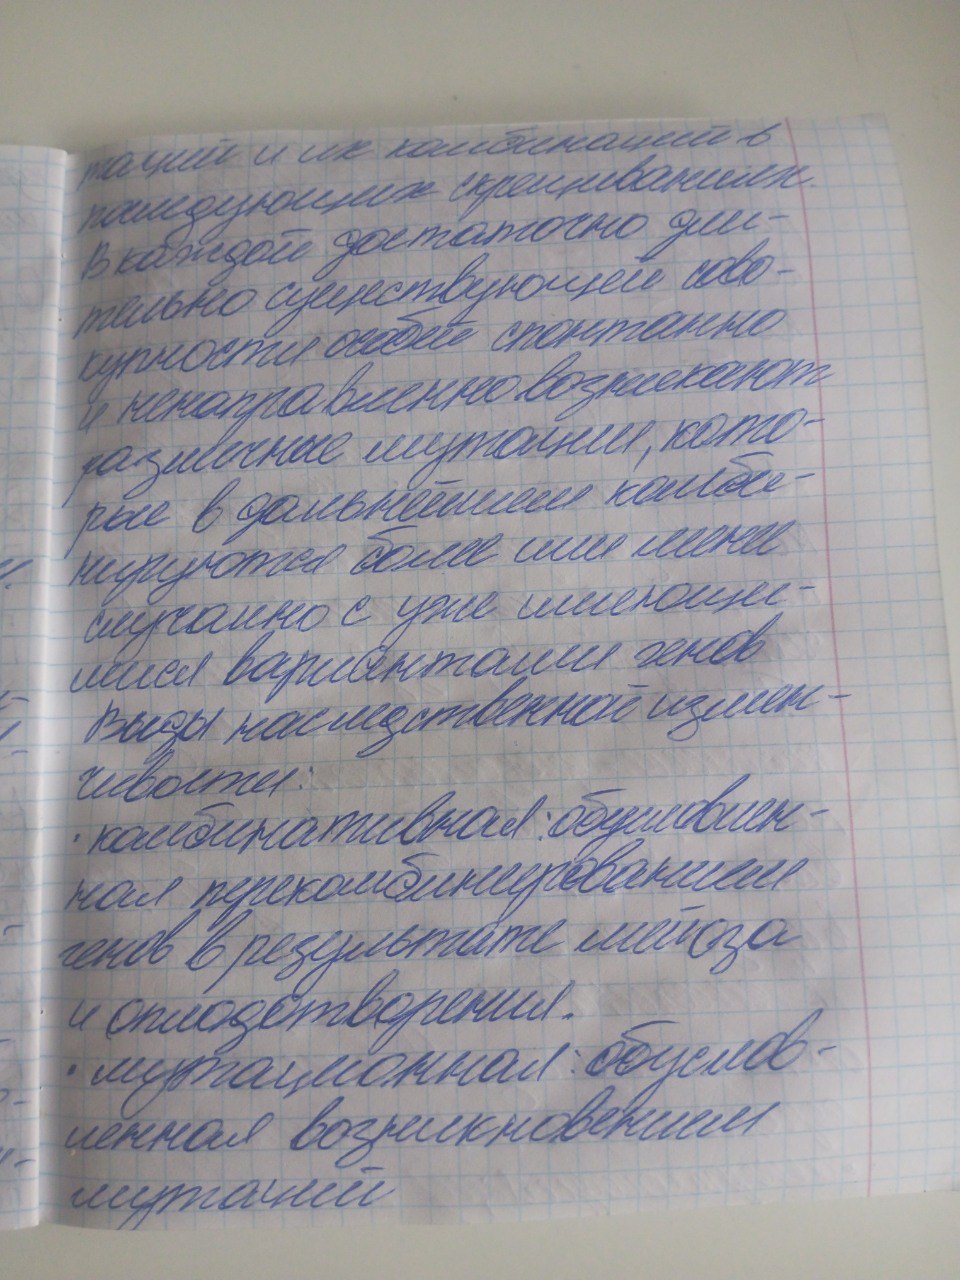 таций и их комбинаций в
последующих скрещиваниях.
В каждой достаточно дли-
тельно существующей сово-
купности особей спонтанно
и ненаправленно возникают
различные мутации, кото-
рые в дальнейшем комби-
нируются более или менее
случайно с уже имеющи-
мися вариантами генов
Виды наследственной измен-
чивости:
· комбинативная: обусловлен-
ная перекомбинированием
генов в результате мейоза
и оплодотворения.
· мутационная: обуслов-
ленная возникновением
мутаций